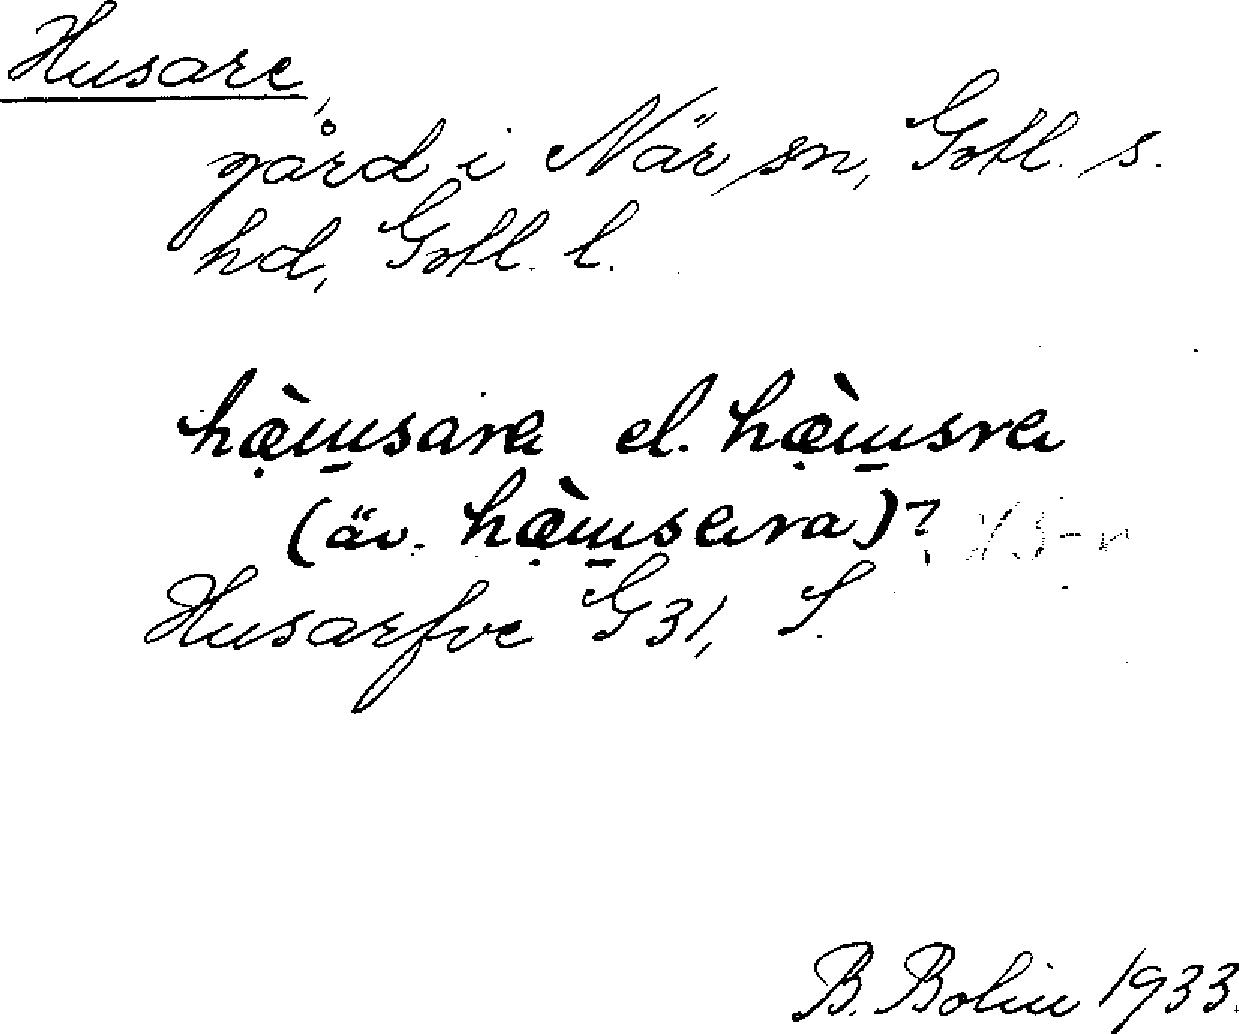 Husare,
gård i När sn, Gotl. s.
hd, Gotl. l.
hæ̣̀u̱sara el. hæ̣̀u̱sra
(äv. hæ̣̀u̱sara)?
Husarfve G31, S.
B. Bolin 1933.